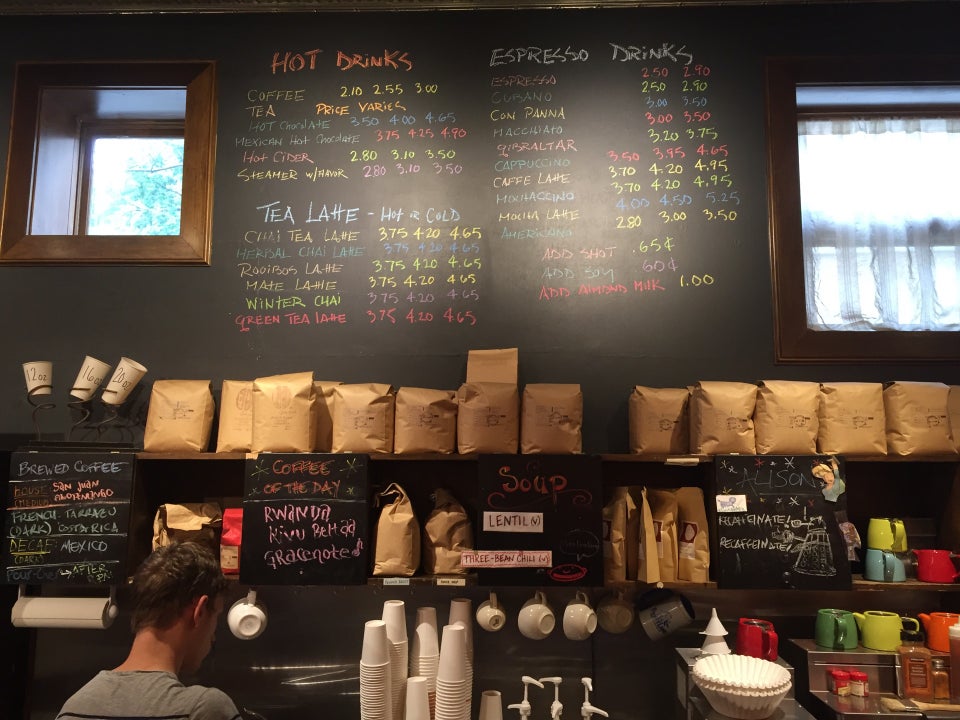 HOT DRINKS
COFFEE 2.10 2.55 3.00
TEA PRICE VARIES
HOT CHOCOLATE 3.50 4.00 4.65
MEXICAN HOT CHOCOLATE 3.75 4.25 4.90
HOT CIDER 2.80 3.10 3.50
STEAMER W/FLAVOR 2.80 3.10 3.50
TEA LATTE - HOT or COLD
CHAI TEA LATTE 3.75 4.20 4.65
HERBAL CHAI LATTE 3.75 4.20 4.65
ROOIBOS LATTE 3.75 4.20 4.65
MATE LATTE 3.75 4.20 4.65
WINTER CHAI 3.75 4.20 4.65
GREEN TEA LATTE 3.75 4.20 4.65
ESPRESSO DRINKS
ESPRESSO 2.50 2.90
CUBANO 2.50 2.90
CON PANNA 3.00 3.50
MACCHIATO 3.00 3.50
GIBRALTAR 3.20 3.75
CAPPUCCINO 3.50 3.95 4.65
CAFFE LATTE 3.70 4.20 4.95
MOKHACCINO 3.70 4.20 4.95
MOCHA LATTE 4.00 4.50 5.25
AMERICANO 2.80 3.00 3.50
ADD SHOT .65¢
ADD SOY 60¢
ADD ALMOND MILK 1.00
12oz
16oz
20oz
BREWED COFFEE
HOUSE SAN JUAN
(MEDIUM)
FRENCH TARRAZU
(DARK) COSTA RICA
DECAF MEXICO
(DARK)
POUR-OVER → AFTER
COFFEE
OF THE DAY
RWANDA
KIVU
gracenote
SOUP
LENTIL (V)
THREE-BEAN CHILI (V)
ALISON
KALAFFEINATE/
DECAFFEINATE/